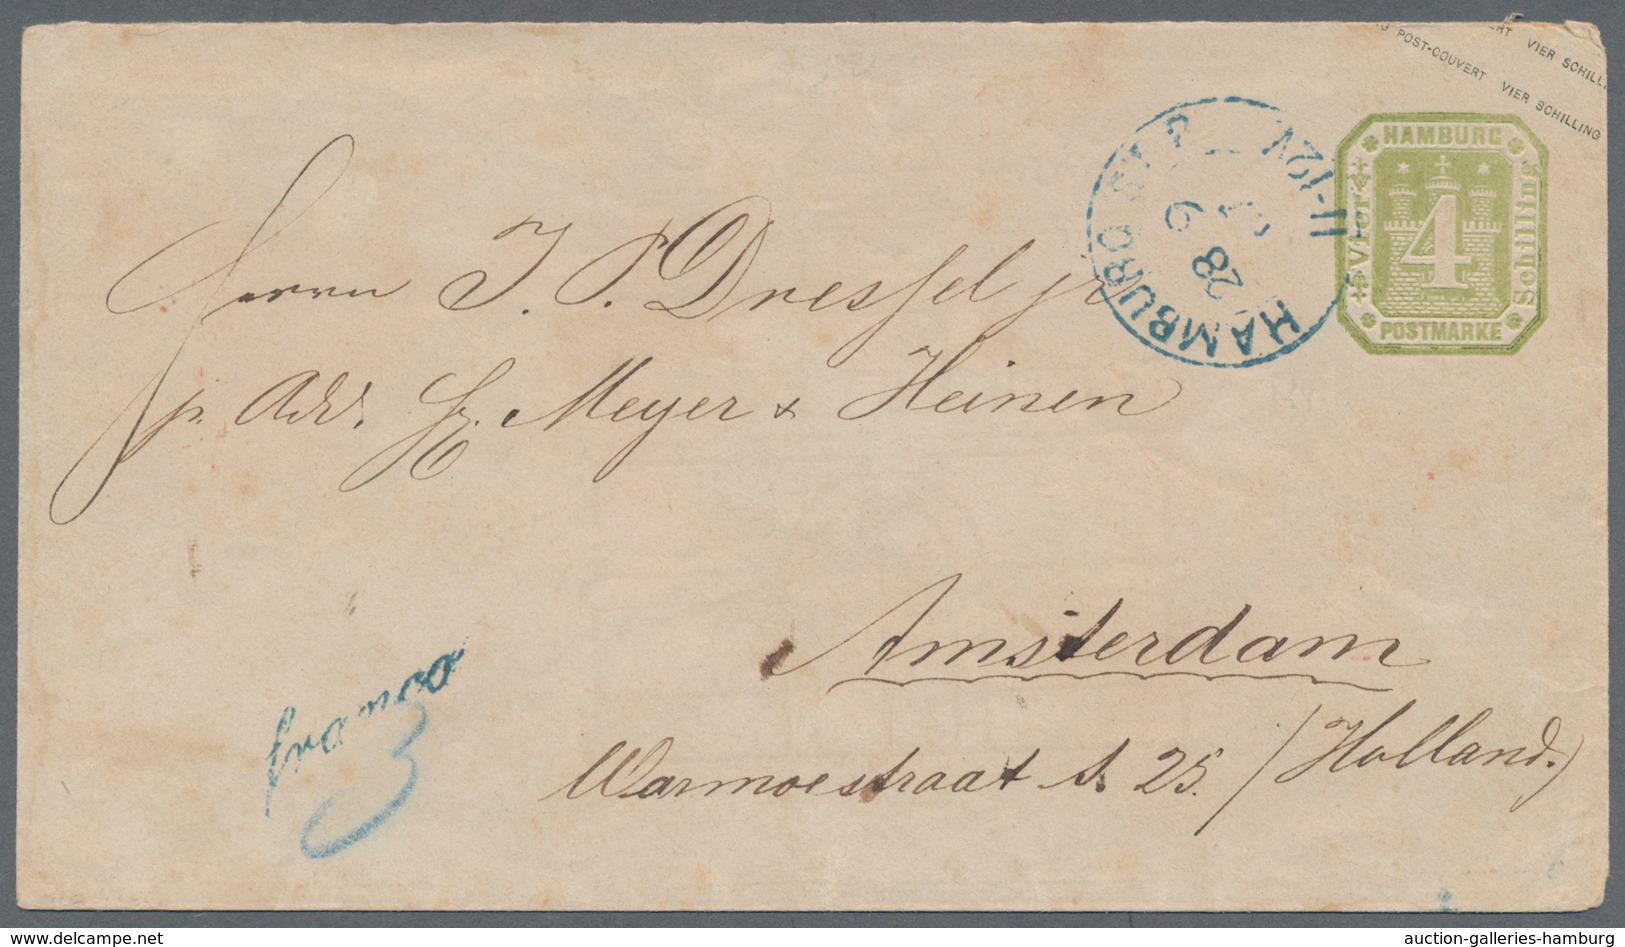 POST-COUVERT VIER SCHILLING
VIER SCHILLI
HAMBURG
Vier
4
Schilling
POSTMARKE
HAMBURG ST. P.
28
6
11-12 V.
Herrn J. P. Dressel jr
p. Adr. H. Meyer & Heinen
Amsterdam
Warmoestraat S. 25. (Holland.)
franco
3
delcampe.net
auction-galleries-hamburg